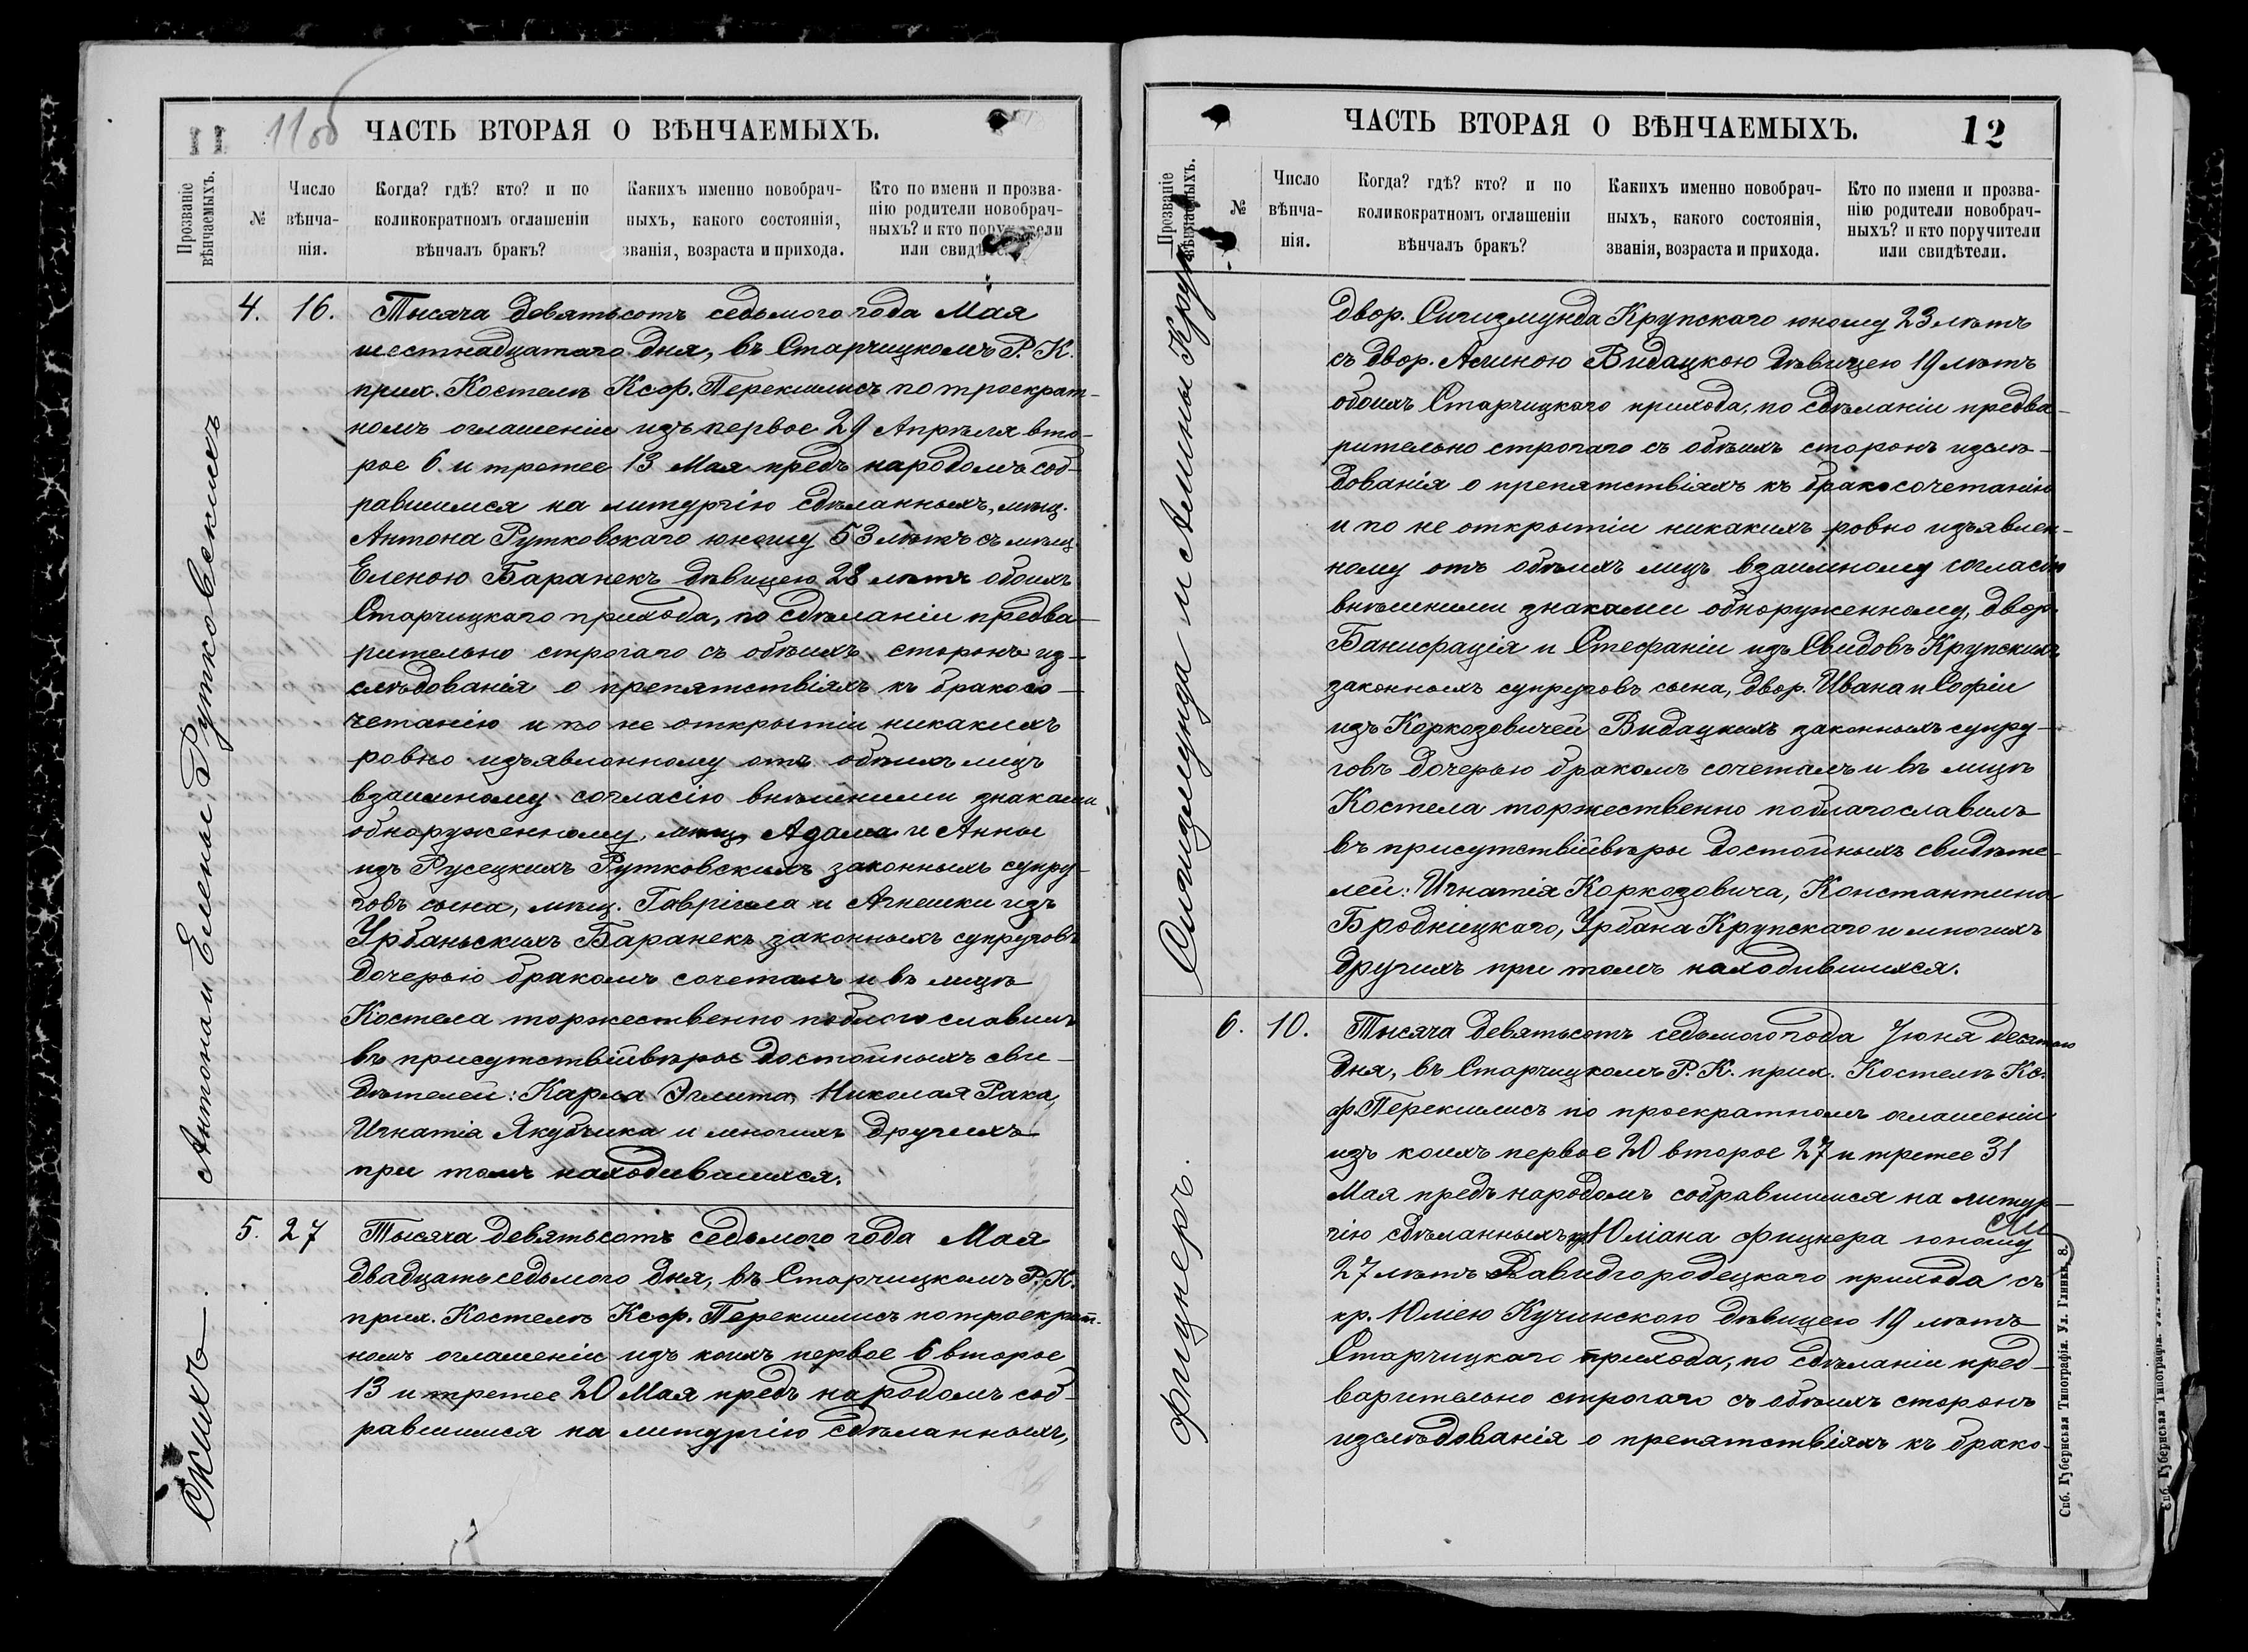 11 11об
ЧАСТЬ ВТОРАЯ О ВѢНЧАЕМЫХЪ.
Прозваніе вѣнчаемыхъ.
№
Число вѣнча-
нія.
Когда? гдѣ? кто? и по
коликократномъ оглашеніи
вѣнчалъ бракъ?
Какихъ именно новобрач-
ныхъ, какого состоянія,
званія, возраста и прихода.
Кто по имени и прозва-
нію родители новобрач-
ныхъ? и кто поручители
или свидѣтели.
Антона и Елены Рутковскихъ
4. 16. Тысяча девятьсотъ седьмого года Мая
шестнадцатаго дня, въ Старчицкомъ Р. К.
прих. Костелѣ Ксф. Перекшлисъ по троекрат-
номъ оглашеніи изъ первое 29 Апрѣля вто-
рое 6 и третее 13 Мая предъ народомъ соб-
равшимся на литургію сдѣланныхъ, мѣщ.
Антона Рутковскаго юношу 53 лѣтъ съ мѣщ.
Еленою Баранекъ дѣвицею 28 лѣтъ обоихъ
Старчицкаго прихода, по сдѣланіи предва-
рительно строгаго съ обѣихъ сторонъ из-
слѣдованія о препятствіяхъ къ бракосо-
четанію и по не открытіи никакихъ
ровно изъявленному отъ обѣихъ лицъ
взаимному согласію внѣшними знаками
обноруженному, мѣщ. Адама и Анны
изъ Русецкихъ Рутковскихъ законныхъ супру-
говъ сына, мѣщ. Гавріила и Агнешки изъ
Урбаньскихъ Баранекъ законныхъ супруговъ
дочерью бракомъ сочеталъ и въ лицѣ
Костела торжественно поблагославилъ
въ присутствіи вѣры достойныхъ сви-
дѣтелей: Карла Эглита, Николая Рака,
Игнатія Якубчика и многихъ другихъ
при томъ находившихся.
Скихъ
5. 27 Тысяча девятьсотъ седьмого года Мая
двадцать седьмого дня, въ Старчицкомъ Р. К.
прих. Костелѣ Ксф. Перекшлисъ по троекрат-
номъ оглашеніи изъ коихъ первое 6 второе
13 и третее 20 Мая предъ народомъ соб-
равшимся на литургію сдѣланныхъ,
ЧАСТЬ ВТОРАЯ О ВѢНЧАЕМЫХЪ.
12
Прозваніе вѣнчаемыхъ.
№
Число вѣнча-
нія.
Когда? гдѣ? кто? и по
коликократномъ оглашеніи
вѣнчалъ бракъ?
Какихъ именно новобрач-
ныхъ, какого состоянія,
званія, возраста и прихода.
Кто по имени и прозва-
нію родители новобрач-
ныхъ? и кто поручители
или свидѣтели.
Сигизмунда и Алины Круп
двор. Сигизмунда Крупскаго юношу 23 лѣтъ
съ двор. Алиною Видацкою дѣвицею 19 лѣтъ
обоихъ Старчицкаго прихода, по сдѣланіи предва-
рительно строгаго съ обѣихъ сторонъ изслѣ-
дованія о препятствіяхъ къ бракосочетанію
и по не открытіи никакихъ ровно изъявлен-
ному отъ обѣихъ лицъ взаимному согласію
внѣшними знаками обноруженному, двор.
Банифація и Стефаніи изъ Свидовъ Крупскихъ
законныхъ супруговъ сына, двор. Ивана и Софіи
изъ Коркозовичей Видацкихъ законныхъ супру-
говъ дочерью бракомъ сочеталъ и въ лицѣ
Костела торжественно поблагославилъ
въ присутствіи вѣры достойныхъ свидѣте-
лей: Игнатія Коркозовича, Константина
Бродницкаго, Урбана Крупскаго и многихъ
другихъ при томъ находившихся.
Фицнеръ.
6. 10. Тысяча девятьсотъ седьмого года Іюня десятаго
дня, въ Старчицкомъ Р. К. прих. Костелѣ Кс.
ф. Перекшлисъ по троекратномъ оглашеніи
изъ коихъ первое 20 второе 27 и третее 31
Мая предъ народомъ собравшимся на литур-
гію сдѣланныхъ Юліана Фицнера юношу
27 лѣтъ Давидгородецкаго прихода съ
кр. Юліею Кучинскою дѣвицею 19 лѣтъ
Старчицкаго прихода, по сдѣланіи пред-
варительно строгаго съ обѣихъ сторонъ
изслѣдованія о препятствіяхъ къ брако-
Спб. Губернская Типографія. Ул. Глинки, 8.